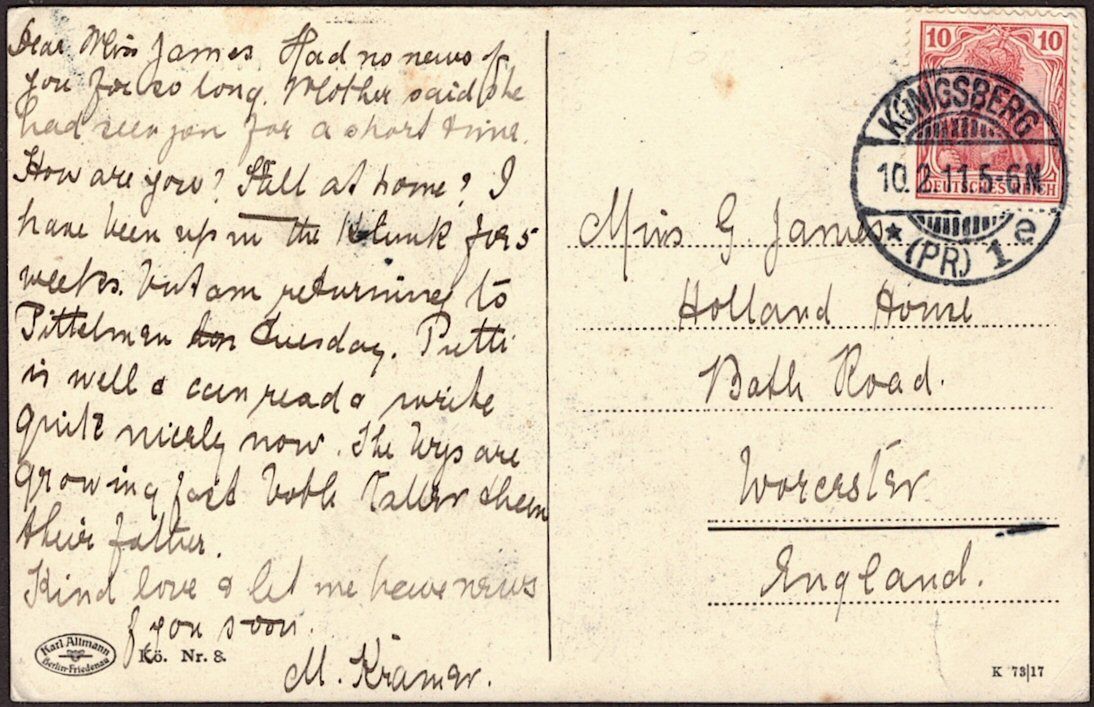 Dear Miss James. Had no news of
you for so long. Mother said she
had seen you for a short time.
How are you? Still at home? I
have been up in the for 5
weeks. but am returning to
Tuesday. Putti
is well & can read & write
quite nicely now. The boys are
growing fast both taller then
their father.
Kind love & let me have news
of you soon.
M. Kramer.
Karl Altmann
Berlin-Friedenau
Kö. Nr. 8.
10 10
DEUTSCHES REICH
KÖNIGSBERG
10.2.11.5-6N
* (PR) 1 e
Miss G. James
Holland House
Bath Road.
Worcester
England.
K 73|17